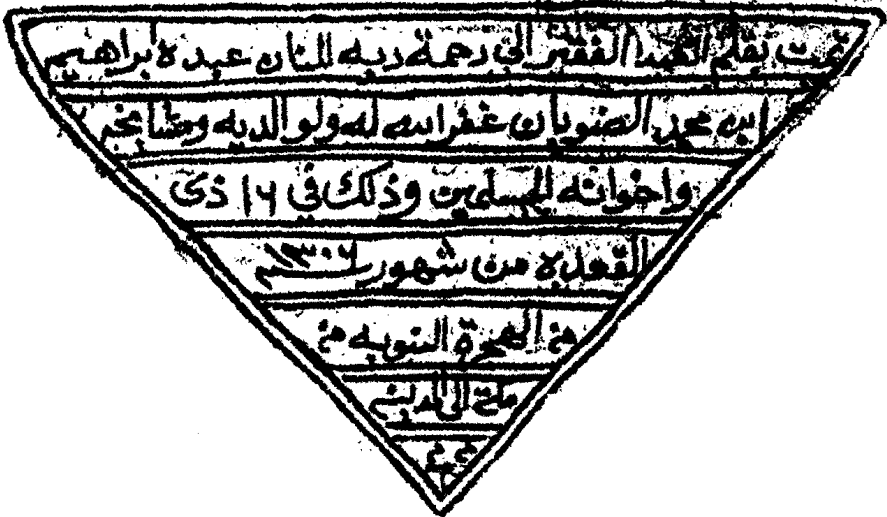 تمت بقلم العبد الفقير الى رحمة ربه المنان عبده ابراهيم
ابن محمد الضويان غفر الله له ولوالديه ومشايخه
واخوانه المسلمين وذلك في ١٦ ذي
القعده من شهور سنة ١٣٠٦
من الهجرة النبويه من
مكة الى المدينة